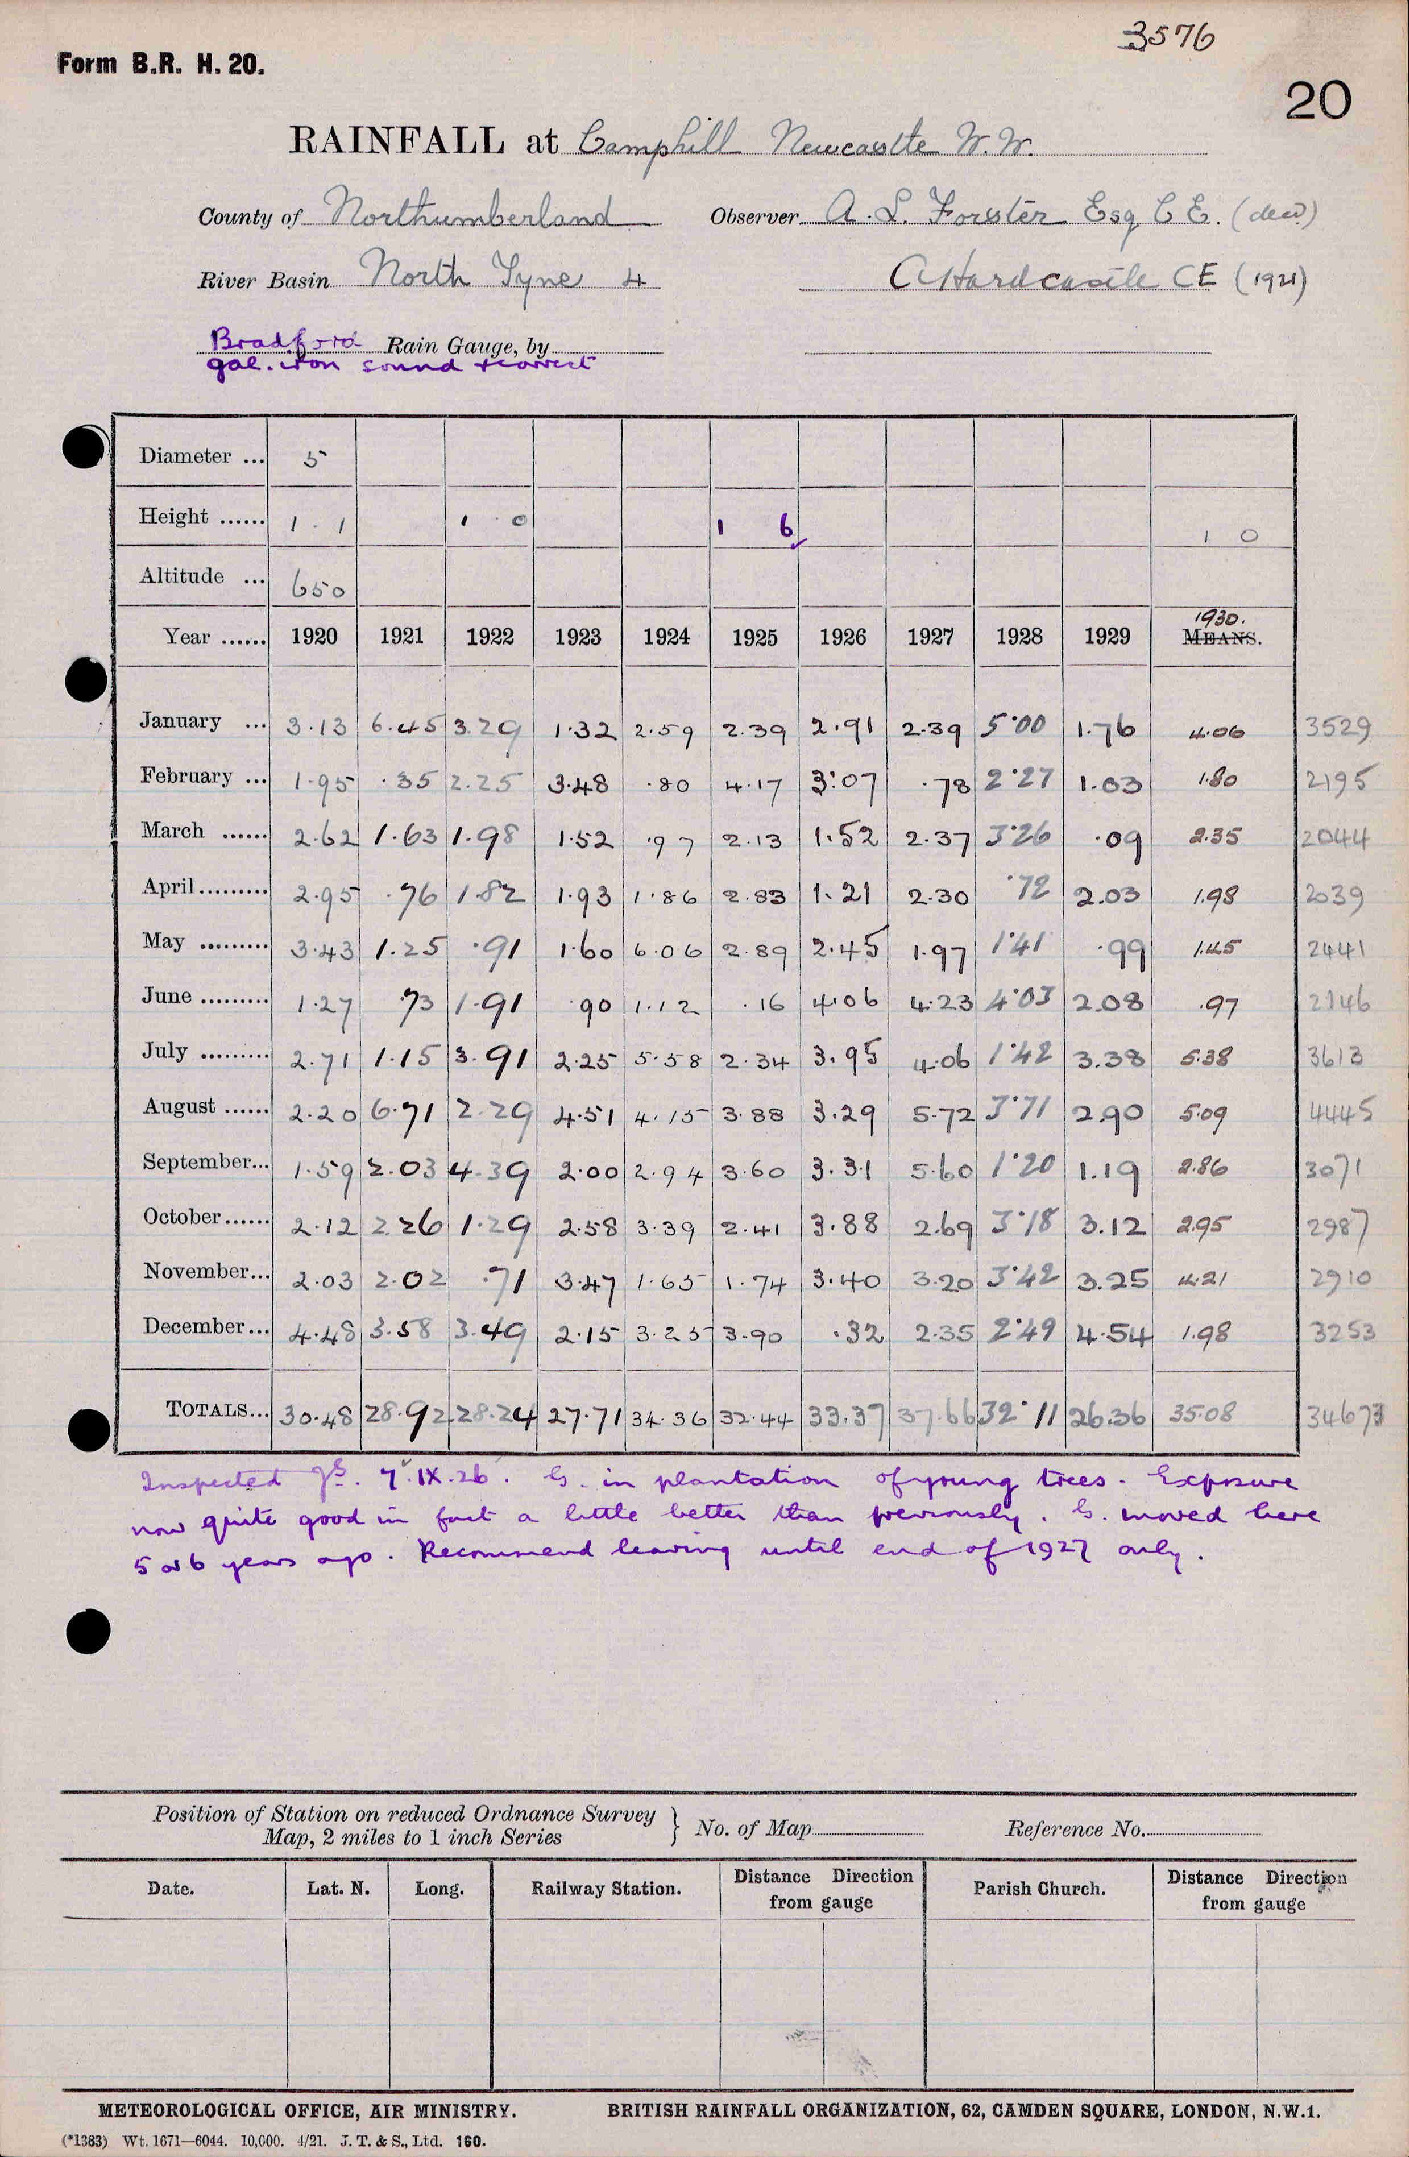 3576
Form B.R. H. 20.
20
RAINFALL at Camphill Newcastle W.W.
County of Northumberland Observer A. L. Forster Esq C E. (decd)
River Basin North Tyne 4 A Hardcastle CE (1921)
Bradford Rain Gauge, by
gal. iron sound & correct
Diameter ... 5
Height ...... 1 . 1 1 . 0 1 6 ✓ 1 0
Altitude ... 650
1930.
Year ...... 1920 1921 1922 1923 1924 1925 1926 1927 1928 1929 MEANS.
January ... 3.13 6.45 3.29 1.32 2.59 2.39 2.91 2.39 5.00 1.76 4.06 3529
February ... 1.95 .35 2.25 3.48 .80 4.17 3.07 .78 2.27 1.03 1.80 2195
March ...... 2.62 1.63 1.98 1.52 .97 2.13 1.52 2.37 3.26 .09 2.35 2044
April ......... 2.95 .76 1.82 1.93 1.86 2.83 1.21 2.30 .72 2.03 1.98 2039
May ......... 3.43 1.25 .91 1.60 6.06 2.89 2.45 1.97 1.41 .99 1.45 2441
June ......... 1.27 .73 1.91 .90 1.12 .16 4.06 4.23 4.03 2.08 .97 2146
July ......... 2.71 1.15 3.91 2.25 5.58 2.34 3.95 4.06 1.42 3.38 5.38 3613
August ...... 2.20 6.71 2.29 4.51 4.15 3.88 3.29 5.72 3.71 2.90 5.09 4445
September... 1.59 2.03 4.39 2.00 2.94 3.60 3.31 5.60 1.20 1.19 2.86 3071
October...... 2.12 2.26 1.29 2.58 3.39 2.41 3.88 2.69 3.18 3.12 2.95 2987
November... 2.03 2.02 .71 3.47 1.65 1.74 3.40 3.20 3.42 3.25 4.21 2910
December... 4.48 3.58 3.49 2.15 3.25 3.90 .32 2.35 2.49 4.54 1.98 3253
TOTALS... 30.48 28.92 28.24 27.71 34.36 32.44 33.37 37.66 32.11 26.36 35.08 34673
Inspected 7.IX.26. G. in plantation of young trees. Exposure
now quite good in fact a little better than previously. G. moved here
5 or 6 years ago. Recommend leaving until end of 1927 only.
Position of Station on reduced Ordnance Survey
Map, 2 miles to 1 inch Series } No. of Map Reference No.
Date. Lat. N. Long. Railway Station. Distance Direction from gauge Parish Church. Distance Direction from gauge
METEOROLOGICAL OFFICE, AIR MINISTRY. BRITISH RAINFALL ORGANIZATION, 62, CAMDEN SQUARE, LONDON, N.W.1.
(*1383) Wt. 1671—6044. 10,000. 4/21. J. T. & S., Ltd. 160.